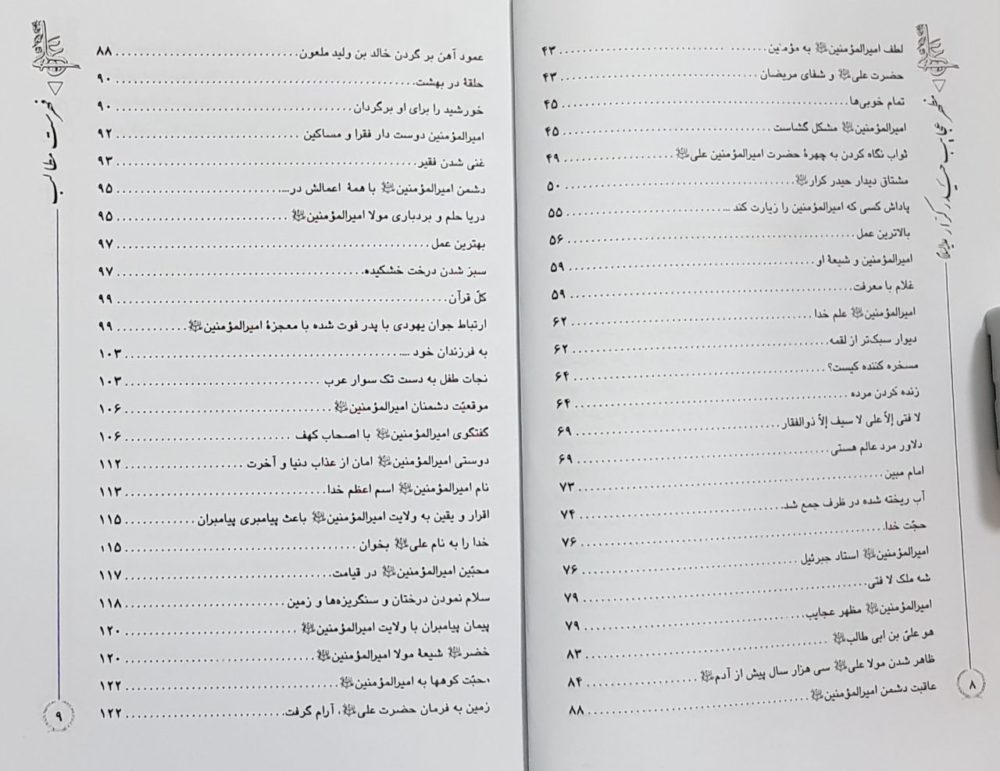 مظهر عجایب حیدر کرار علیه السلام
لطف امیرالمؤمنین ﷷ به مؤمنین ........ ۴۳
حضرت علی ﷷ و شفای مریضان ........ ۴۳
تمام خوبی‌ها ........ ۴۵
امیرالمؤمنین ﷷ مشکل گشاست ........ ۴۵
ثواب نگاه کردن به چهرهٔ حضرت امیرالمؤمنین علی ﷷ ........ ۴۹
مشتاق دیدار حیدر کرار ﷷ ........ ۵۰
پاداش کسی که امیرالمؤمنین را زیارت کند ... ........ ۵۵
بالاترین عمل ........ ۵۶
امیرالمؤمنین و شیعهٔ او ........ ۵۹
غلام با معرفت ........ ۵۹
امیرالمؤمنین ﷷ علم خدا ........ ۶۲
دیوار سبک‌تر از لقمه ........ ۶۲
مسخره کننده کیست؟ ........ ۶۴
زنده کردن مرده ........ ۶۴
لا فتی إلاّ علی لا سیف إلاّ ذوالفقار ........ ۶۹
دلاور مرد عالم هستی ........ ۶۹
امام مبین ........ ۷۳
آب ریخته شده در ظرف جمع شد ........ ۷۴
حجّت خدا ........ ۷۶
امیرالمؤمنین ﷷ استاد جبرئیل ........ ۷۶
شه ملک لا فتی ........ ۷۹
امیرالمؤمنین ﷷ مظهر عجایب ........ ۷۹
هو علیّ بن ابی طالب ﷷ ........ ۸۳
ظاهر شدن مولا علی ﷷ سی هزار سال پیش از آدم ﷷ ........ ۸۴
عاقبت دشمن امیرالمؤمنین ﷷ ........ ۸۸
۸
فهرست مطالب
عمود آهن بر گردن خالد بن ولید ملعون ........ ۸۸
حلقهٔ در بهشت ........ ۹۰
خورشید را برای او برگردان ........ ۹۰
امیرالمؤمنین دوست دار فقرا و مساکین ........ ۹۲
غنی شدن فقیر ........ ۹۳
دشمن امیرالمؤمنین ﷷ با همهٔ اعمالش در... ........ ۹۵
دریا حلم و بردباری مولا امیرالمؤمنین ﷷ ........ ۹۵
بهترین عمل ........ ۹۷
سبز شدن درخت خشکیده ........ ۹۷
کلّ قرآن ........ ۹۹
ارتباط جوان یهودی با پدر فوت شده با معجزهٔ امیرالمؤمنین ﷷ ........ ۹۹
به فرزندان خود ... ........ ۱۰۳
نجات طفل به دست تک سوار عرب ........ ۱۰۳
موقعیّت دشمنان امیرالمؤمنین ﷷ ........ ۱۰۶
گفتگوی امیرالمؤمنین ﷷ با اصحاب کهف ........ ۱۰۶
دوستی امیرالمؤمنین ﷷ امان از عذاب دنیا و آخرت ........ ۱۱۲
نام امیرالمؤمنین ﷷ اسم اعظم خدا ........ ۱۱۳
اقرار و یقین به ولایت امیرالمؤمنین ﷷ باعث پیامبری پیامبران ........ ۱۱۵
خدا را به نام علی ﷷ بخوان ........ ۱۱۵
محبّین امیرالمؤمنین ﷷ در قیامت ........ ۱۱۷
سلام نمودن درختان و سنگریزه‌ها و زمین ........ ۱۱۸
پیمان پیامبران با ولایت امیرالمؤمنین ﷷ ........ ۱۲۰
خضر ﷷ شیعهٔ مولا امیرالمؤمنین ﷷ ........ ۱۲۰
محبّت کوهها به امیرالمؤمنین ﷷ ........ ۱۲۲
زمین به فرمان حضرت علی ﷷ، آرام گرفت ........ ۱۲۲
۹